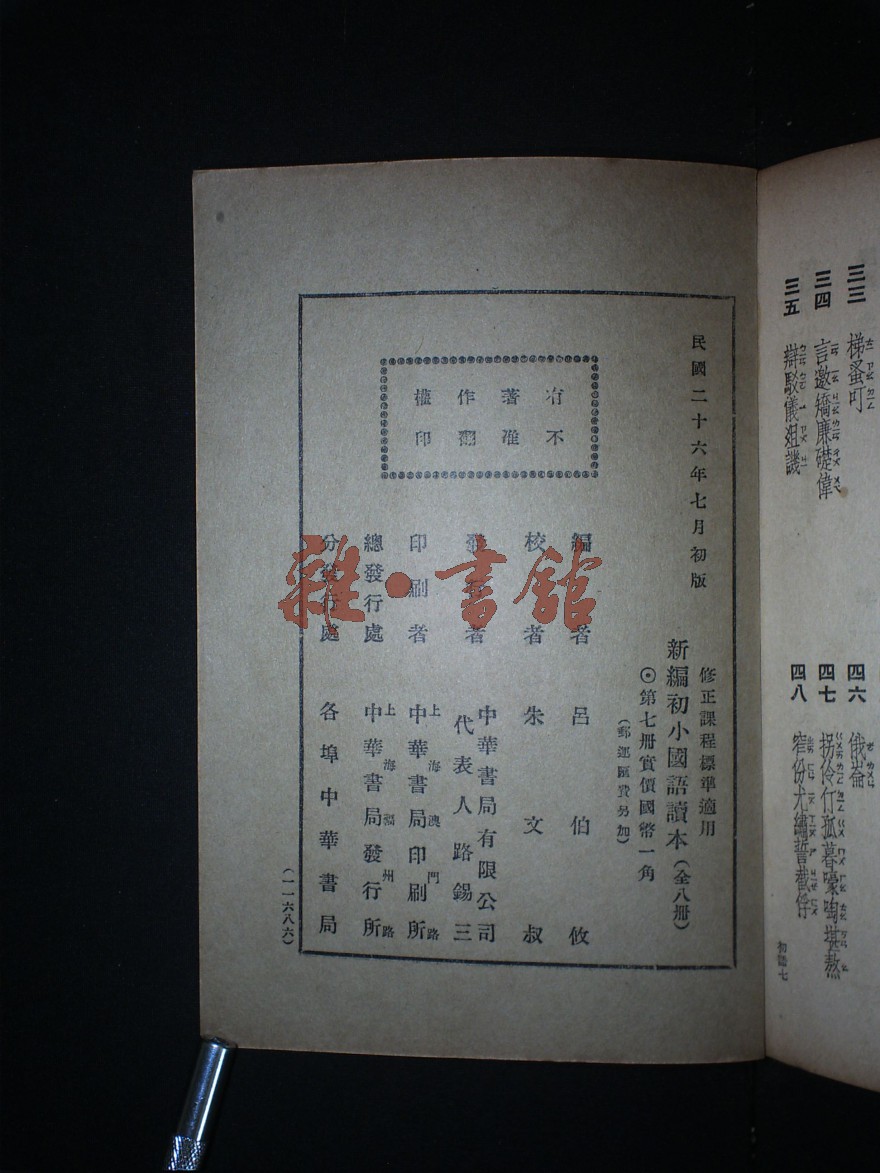 民國二十六年七月初版
修正課程標準適用
新編初小國語讀本（全八冊）
⊙第七冊實價國幣一角
（郵運匯費另加）
有著作權
不准翻印
編者 呂伯攸
校者 朱文叔
發行者 中華書局有限公司
代表人路錫三
印刷者 上海澳門路
中華書局印刷所
總發行處 上海福州路
中華書局發行所
分發行處 各埠中華書局
（一一六八六）
雜·書館
三三 梯蚤叮
三四 言邀矯廉礎偉
三五 辯駁儀姐譏
四六 俄崙
四七 拐伶仃孤暮嚎啕堪熬
四八 窄份尤繡誓截俘
初語七